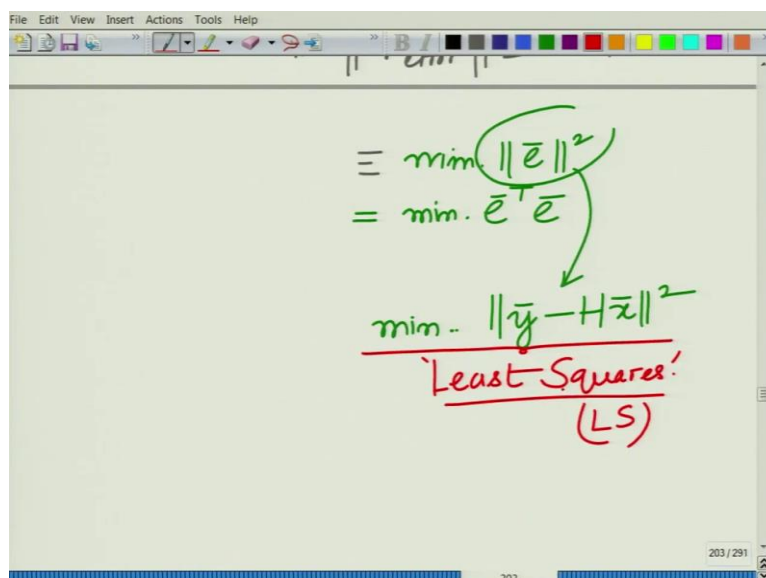 File Edit View Insert Actions Tools Help
B I
≡ min. ‖ē‖²
= min. ēᵀ ē
min.. ‖ȳ − Hx̄‖²
'Least Squares'
(LS)
203 / 291